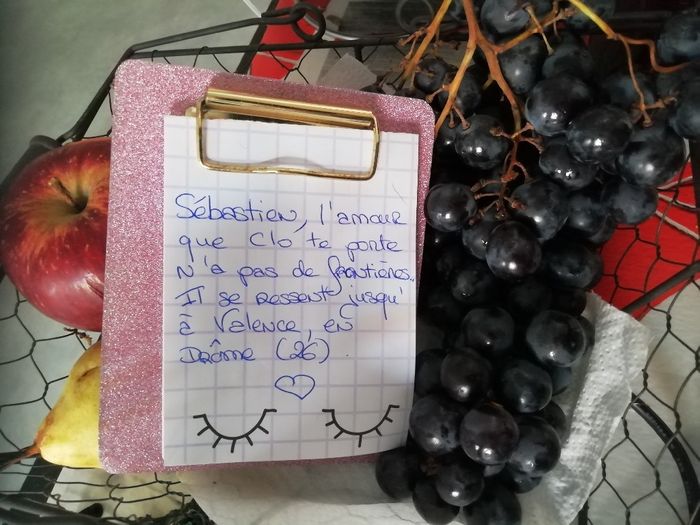 Sébastien, l'amour
que Clo te porte
n'a pas de frontières..
Il se ressent jusqu'
à Valence, en
Drôme (26).